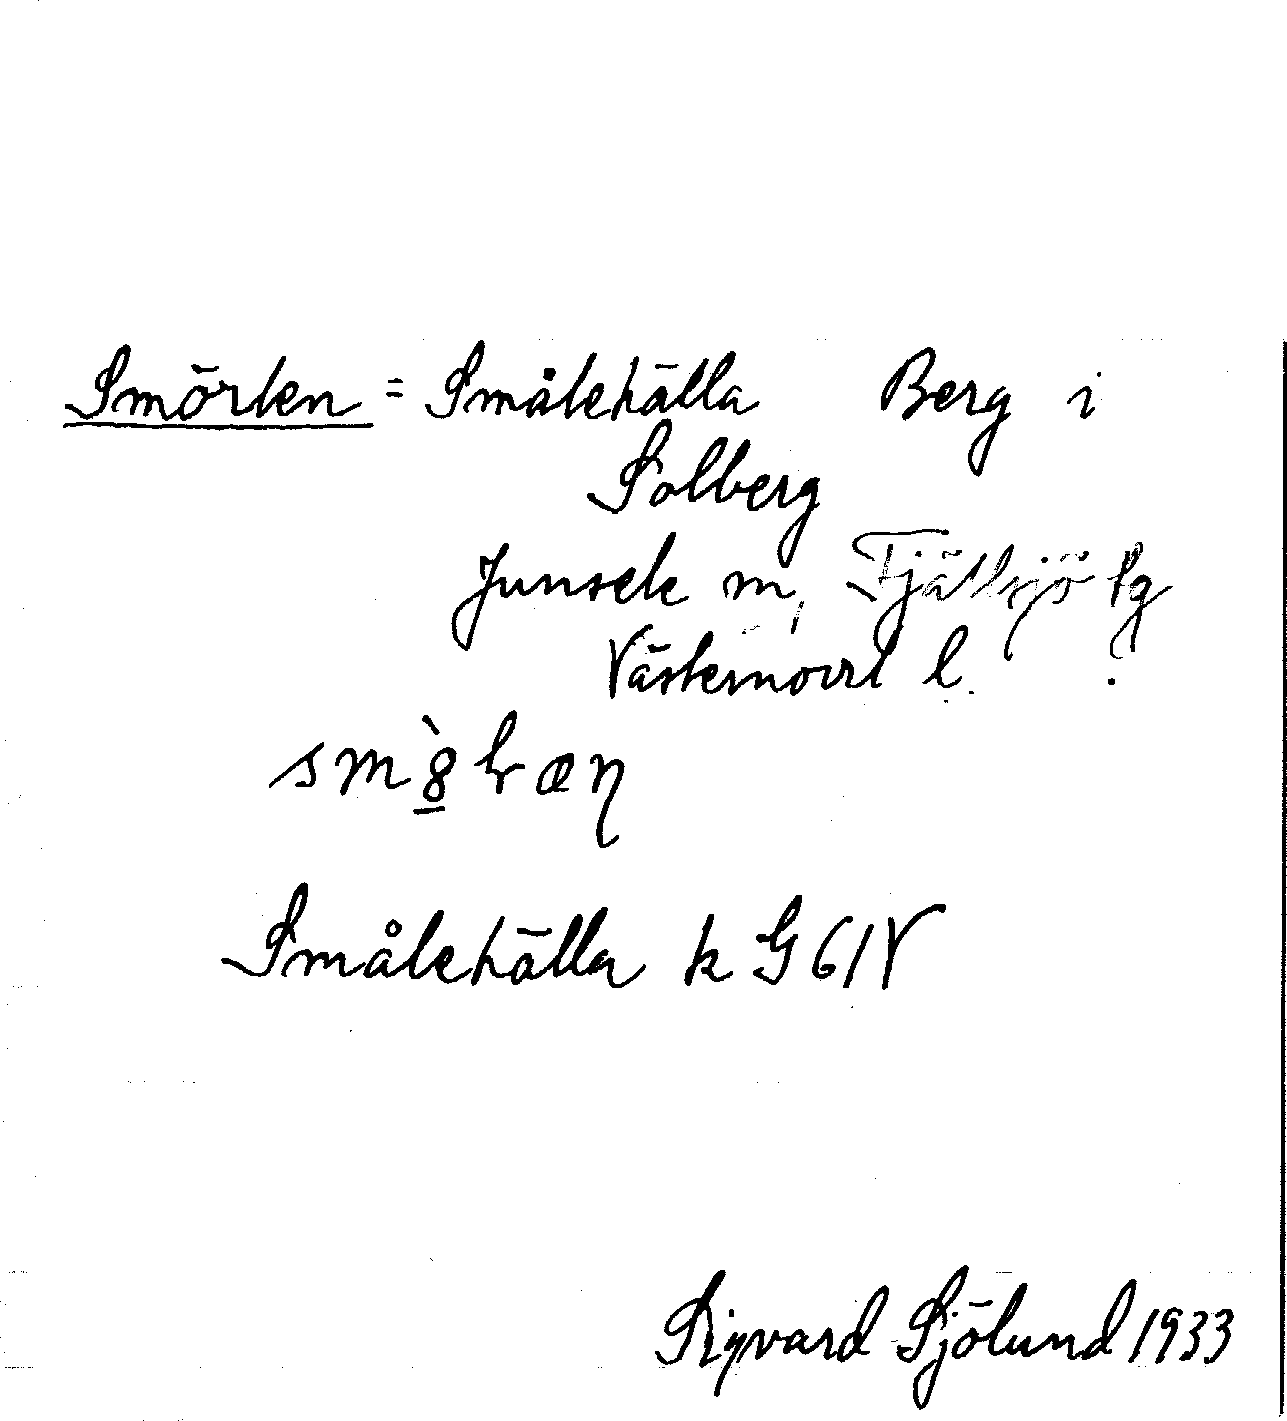 Smörten = Småtehälla Berg i
Solberg
Junsele m, Fjällsjö lg
Västernorrl l.
Småtehälla k G 61 V
Sigvard Sjölund 1933